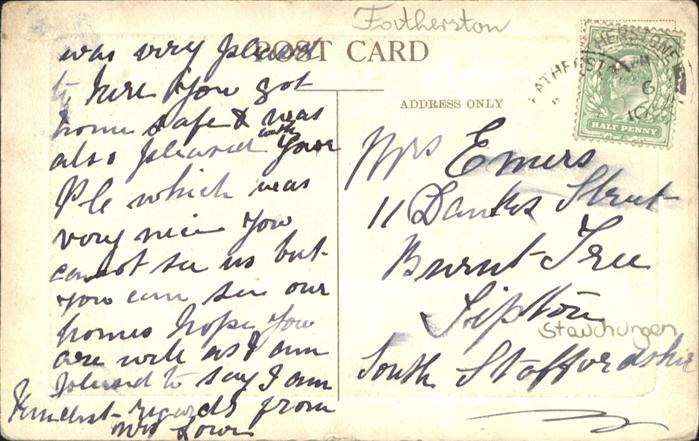 Fotherston
POST CARD
ADDRESS ONLY
HALF PENNY
was very pleased
to here you got
home safe & was
also pleased with your
P/c which was
very nice you
cannot see us but
you can see our
homes hope you
are well as I am
pleased to say I am
Kindest regards from
Mrs Lowe
Mrs Emers
11 Danks Street
Burnt Tree
Tipton
Stauchungen
South Staffordshire